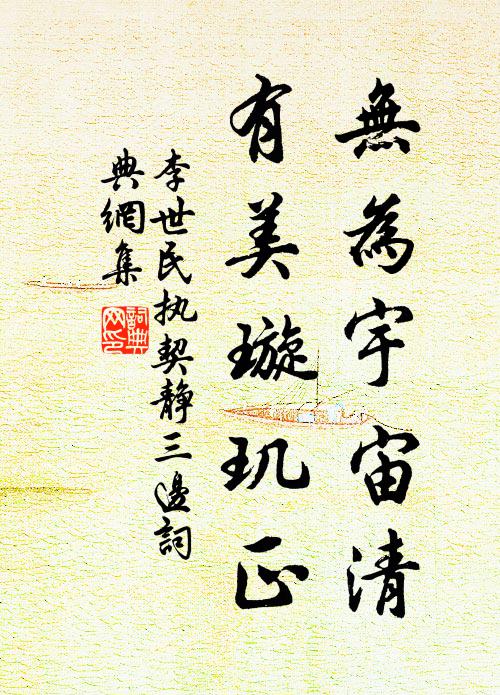 無為宇宙清
有美璇玑正
李世民执契静三邊詞
典網集
詞典
网印